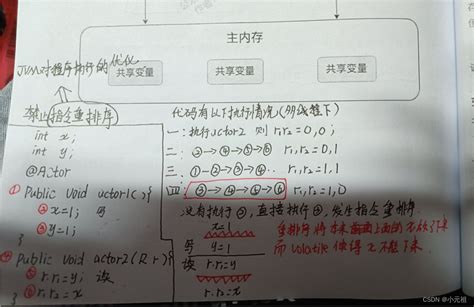 主内存
共享变量
共享变量
共享变量
JVM对程序执行的优化
禁止指令重排序
int x;
int y;
@Actor
① Public void actor1(){
② x=1; 写
③ y=1;
④ Public void actor2(R r){
r.r1=y; 读
r.r2=x
代码有以下执行情况(多线程下)
一:执行actor2 则 r1,r2=0,0;
二:
r1,r2=0,1
三:
r1,r2=1,1
四:
r1,r2=1,0
没有执行②,直接执行③,发生指令重排序
x=1
写 y=1
读 r.r1=y
r.r2=x
重排序将本来
而volatile使得
下来
CSDN @小元祖